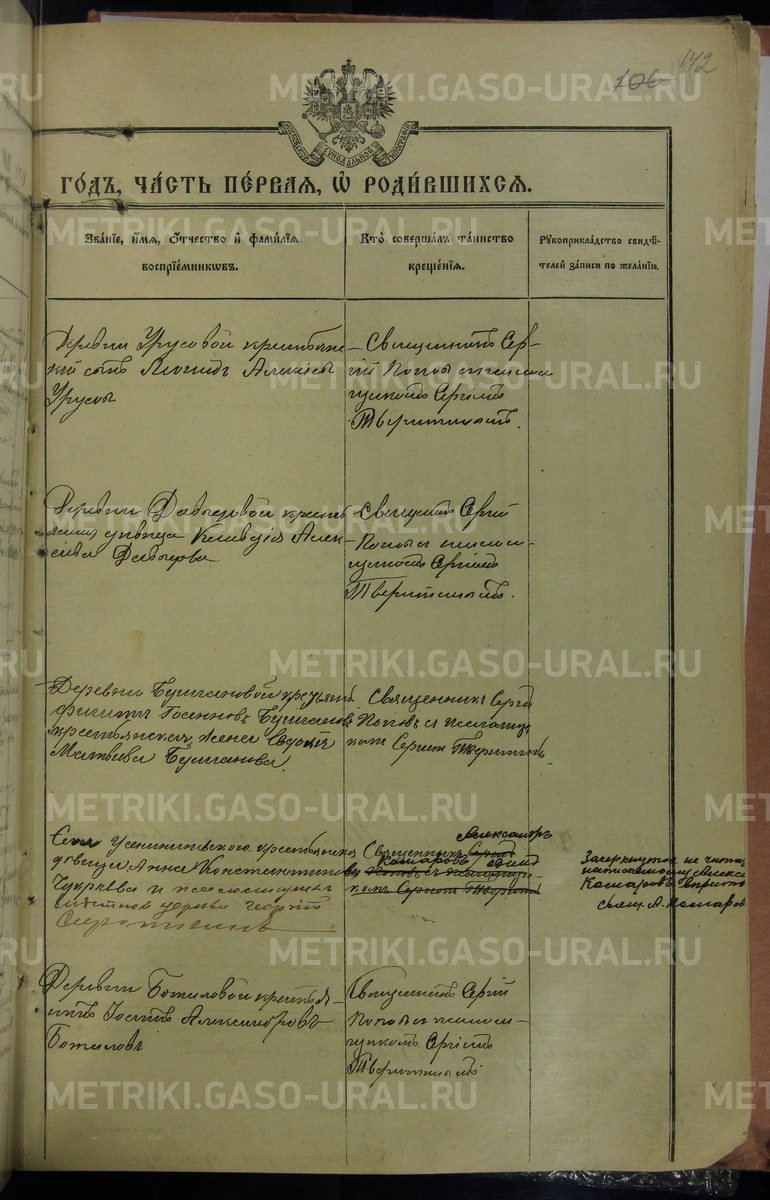 142
106
МОСКОВСКОЙ СУНОДАЛЬНОЙ ТИПОГРАФІИ
ГО́ДЪ, ЧА́СТЬ ПЕ́РВАЯ, Ѽ РОДИ́ВШИХСЯ.
Зва́нїе, и҆́мя, ѻ҆́тчество и҆ фамі́лїя
воспрїе́мникѡвъ.
Кто̀ соверша́лъ та́инство
креще́нїѧ.
Рꙋкоприкла́дство свидѣ́-
телей за́писи по жела́нїю.
Деревни Урусовой крестьянс
кій сынъ Алексѣевъ
Урусовъ
Священникъ Сер-
гій Поповъ съ псалом
щикомъ Сергіемъ
Тверитинымъ.
Деревни Давыдовой кресть
янская дѣвица Клавдія Алек
сѣева Давыдова
Священникъ Сергій
Поповъ съ псалом
щикомъ Сергіемъ
Тверитинымъ.
Деревни Бушлановой крестьянинъ
Бушлановъ
крестьянская жена Евдокія
Матвѣева Бушланова.
Священникъ Сергій
Поповъ съ псаломщи
комъ Сергіемъ Тверитинымъ
Села крестьянская
дѣвица Анна Константинова
и псаломщикъ
церкви Георгій
Александръ
Священникъ Сергій
Комаровъ
Поповъ съ псаломщи
комъ Сергіемъ Тверитинымъ
Зачеркнутое не читать,
написанному Алекса
Комаровъ вѣрить
свящ. А. Комаровъ
Деревни Божиловой крестья-
нинъ Іосифъ Александровъ
Божиловъ
Священникъ Сергій
Поповъ съ псалом-
щикомъ Сергіемъ
Тверитинымъ
METRIKI.GASO-URAL.RU